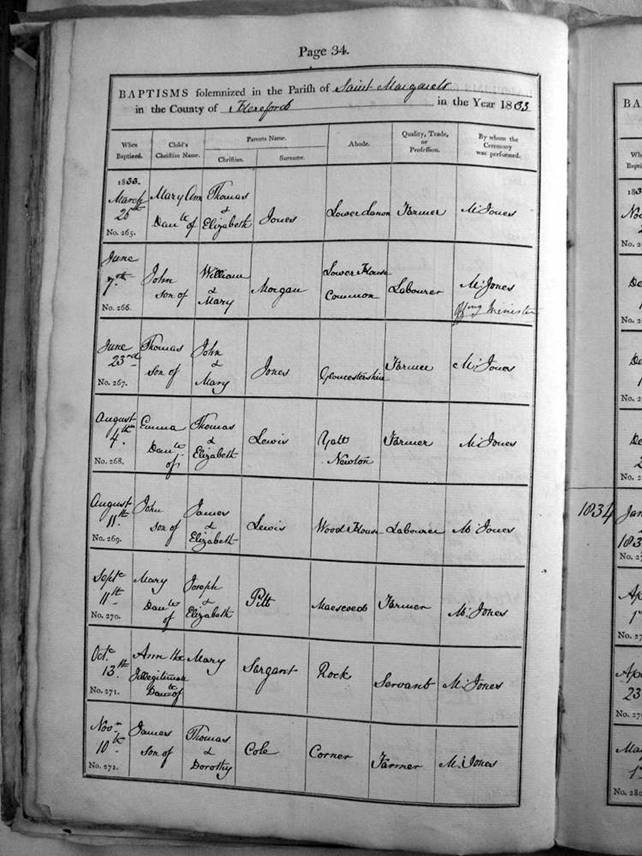 Page 34.
BAPTISMS solemnized in the Parish of Saint Margarets
in the County of Hereford in the Year 1833
When Baptized. Child's Christian Name. Parents Name. Christian. Surname. Abode. Quality, Trade, or Profession. By whom the Ceremony was performed.
1833.
March 25th Mary Ann Daute of Thomas & Elizabeth Jones Lower Farmer M. Jones
No. 265.
June 7th John son of William & Mary Morgan Lower House Common Labourer M. Jones Offng Minister
No. 266.
June 23rd Thomas son of John & Mary Jones Gloucestershire Farmer M. Jones
No. 267.
August 4th Emma Daute of Thomas & Elizabeth Lewis Yatt Newton Farmer M. Jones
No. 268.
August 11th John son of James & Elizabeth Lewis Wood House Labourer M. Jones
No. 269.
Septr 11th Mary Daute of Joseph & Elizabeth Pitt Maescoed Farmer M. Jones
No. 270.
Octr 13th Ann the Illegitimate Daute of Mary Sargant Rock Servant M. Jones
No. 271.
Novr 10th James son of Thomas & Dorothy Cole Corner Farmer M. Jones
No. 272.
BA
1834